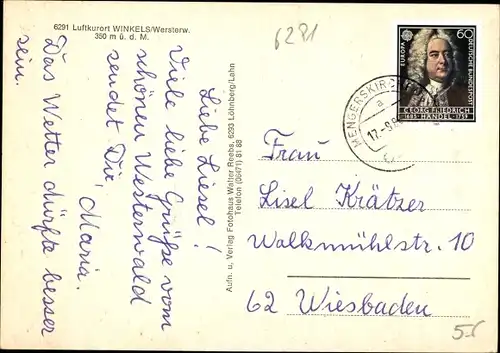 6291 Luftkurort WINKELS/Westerw.
350 m ü. d. M.
6281
Liebe Liesel!
Viele liebe Grüße vom
schönen Westerwald
sendet Dir
Maria.
Das Wetter dürfte besser
sein.
Aufn. u. Verlag Fotohaus Walter Reebs, 6293 Löhnberg/Lahn
Telefon (06471) 81 88
EUROPA
60
DEUTSCHE BUNDESPOST
GEORG FRIEDRICH
1685 HÄNDEL 1759
MENGERSKIRCHEN
a
Frau
Lisel Krätzer
Walkmühlstr. 10
62 Wiesbaden